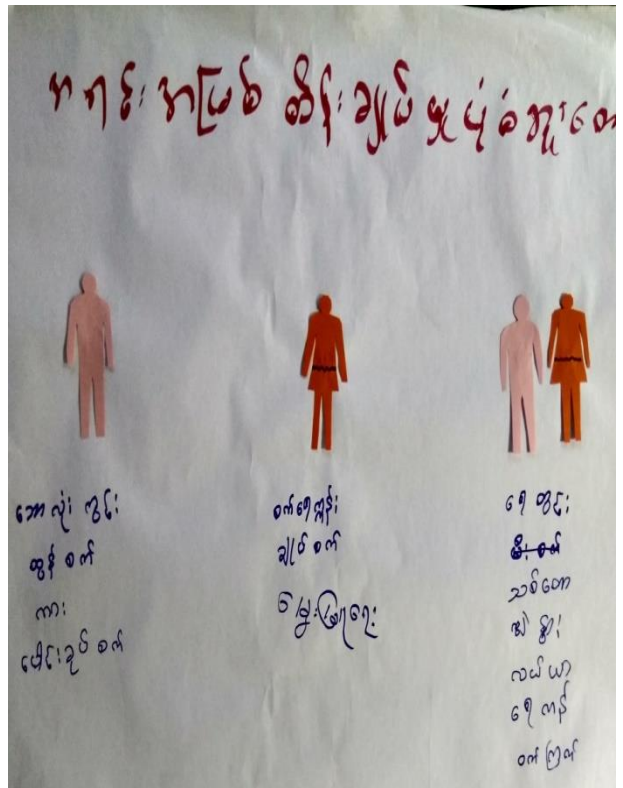 အရင်းအမြစ် ထိန်းချုပ်မှု ပုံစံ
ဘောလုံး ကွင်း
ထွန် စက်
ကား
ပေါင်းခုပ် စက်
စက်ရေကွန်း
ချုပ် စက်
မွေးမြူရေး
ရေ တွင်း
မီး စက်
သစ်တော
နွား
လယ် ယာ
ရေ ကန်
ဝက် ကြက်